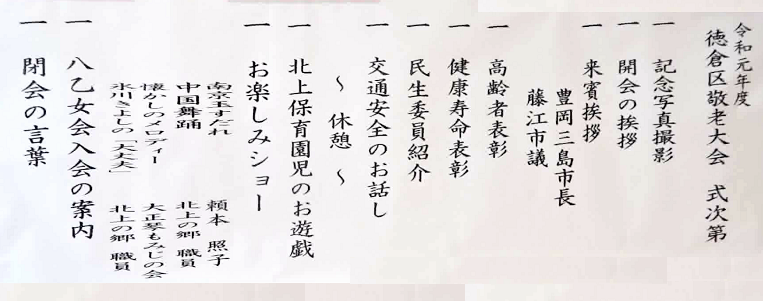 令和元年度
徳倉区敬老大会 式次第
一 記念写真撮影
一 開会の挨拶
一 来賓挨拶
豊岡三島市長
藤江市議
一 高齢者表彰
一 健康寿命表彰
一 民生委員紹介
一 交通安全のお話し
~ 休憩 ~
一 北上保育園児のお遊戯
一 お楽しみショー
南京玉すだれ 頼本 照子
中国舞踊 北上の郷 職員
懐かしのメロディー 大正琴もみじの会
氷川きよしの「大丈夫」 北上の郷 職員
一 八乙女会入会の案内
一 閉会の言葉